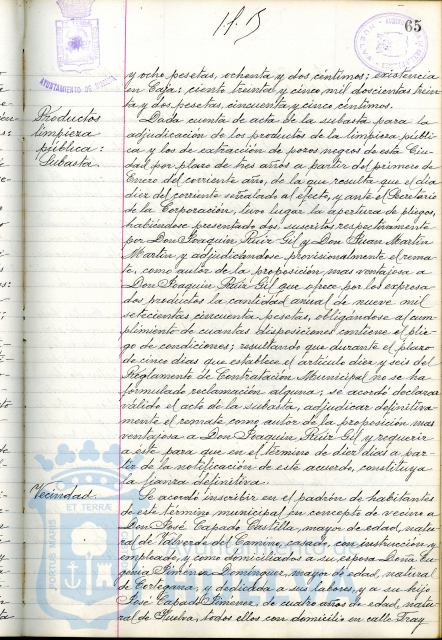 65
AYUNTAMIENTO DE HUELVA
y ocho pesetas, ochenta y dos céntimos; existencia
en Caja: ciento treinta y cinco mil doscientas trein
ta y dos pesetas, cincuenta y cinco céntimos.
Productos
limpieza
pública:
Subasta
Dada cuenta de acta de la subasta para la
adjudicación de los productos de la limpieza públi
ca y los de extracción de pozos negros de esta Ciu
dad por plazo de tres años a partir del primero de
Enero del corriente año, de la que resulta que el día
diez del corriente señalado al efecto, y ante el Secretario
de la Corporación, tuvo lugar la apertura de pliegos,
habiéndose presentado dos, suscritos respectivamente
por Don Joaquín Ruiz Gil y Don Juan Martín
Martín y adjudicándose provisionalmente el rema
te, como autor de la proposición mas ventajosa a
Don Joaquín Ruiz Gil que ofrece por los expresa
dos productos la cantidad anual de nueve mil
setecientas cincuenta pesetas, obligándose al cum
plimiento de cuantas disposiciones contiene el plie
go de condiciones; resultando que durante el plazo
de cinco días que establece el artículo diez y seis del
Reglamento de Contratación Municipal no se ha
formulado reclamación alguna; se acordó declarar
válido el acto de la subasta, adjudicar definitiva
mente el remate como autor de la proposición mas
ventajosa a Don Joaquín Ruiz Gil y requerir
a este para que en el término de diez días a par
tir de la notificación de este acuerdo, constituya
la fianza definitiva.
Vecindad.
Se acordó inscribir en el padrón de habitantes
de este término municipal en concepto de vecino a
Don José Capado Castilla, mayor de edad, natu
ral de Valverde del Camino, casado, con instrucción y
empleado, y como domiciliados a su esposa Doña Eu
genia Jiménez Domínguez, mayor de edad, natural
de Cortegana, y dedicada a sus labores, y a su hijo
José Capado Jimenez, de cuatro años de edad, natu
ral de Huelva, todos ellos con domicilio en calle Fray
PORTUS MARIS
ET TERRAE